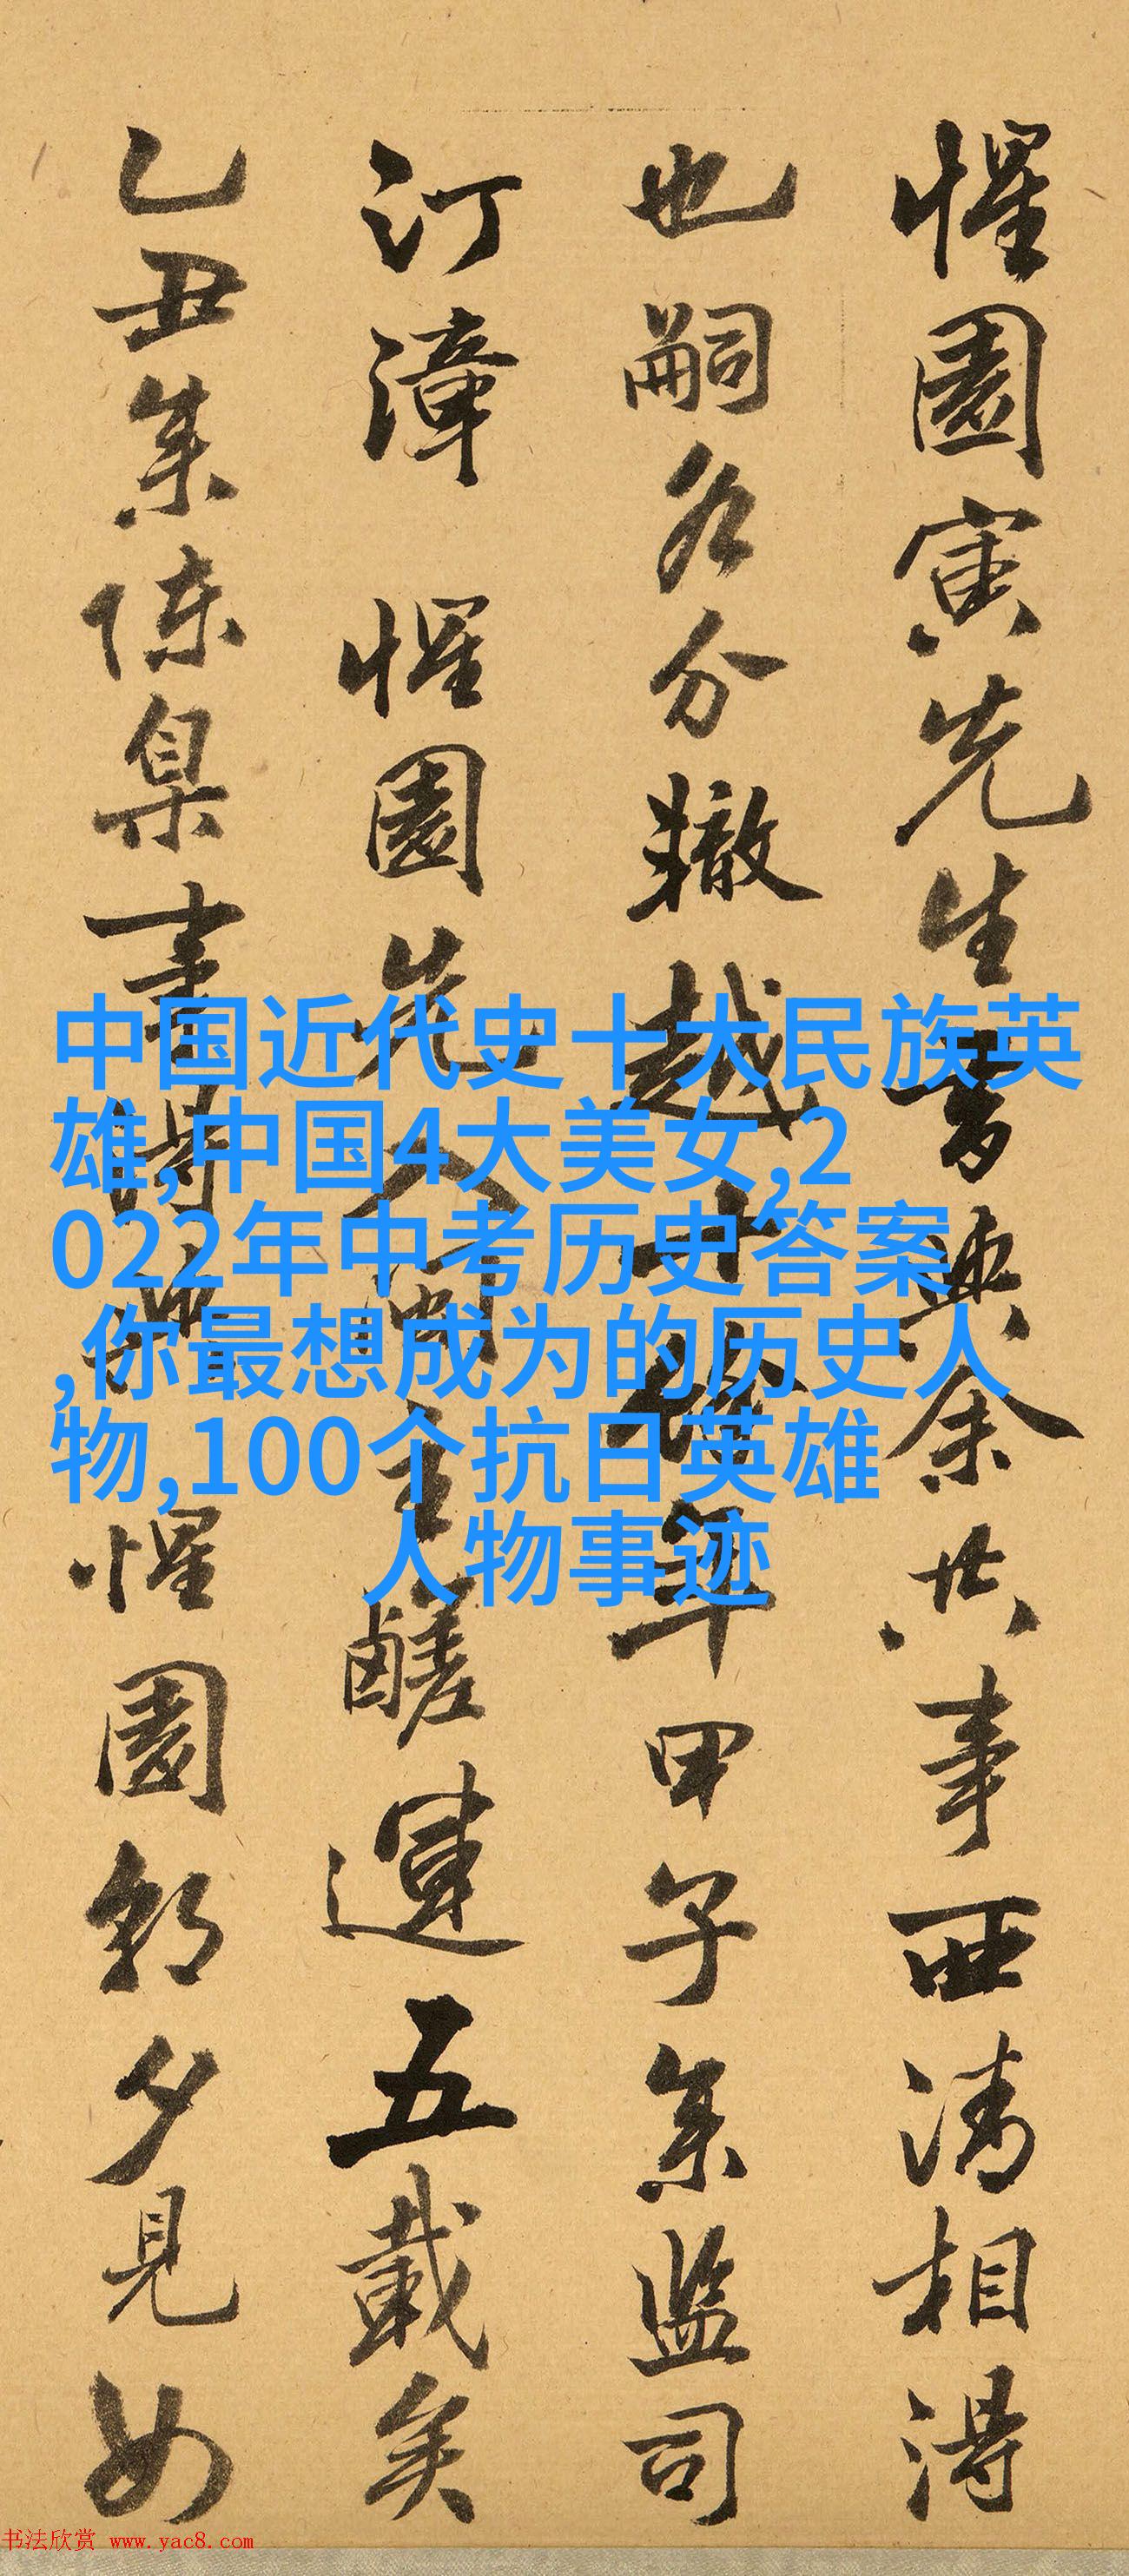 惺園寅先生書與余共事西清相得
也嗣各分轍越十餘年甲子余監司
汀漳 惺園先入閩主鹺運五載矣
乙丑余陳臬 惺園朝夕見如
中国近代史十大民族英
雄,中国4大美女,2
022年中考历史答案
,你最想成为的历史人
物,100个抗日英雄
人物事迹
书法欣赏 www.yac8.com